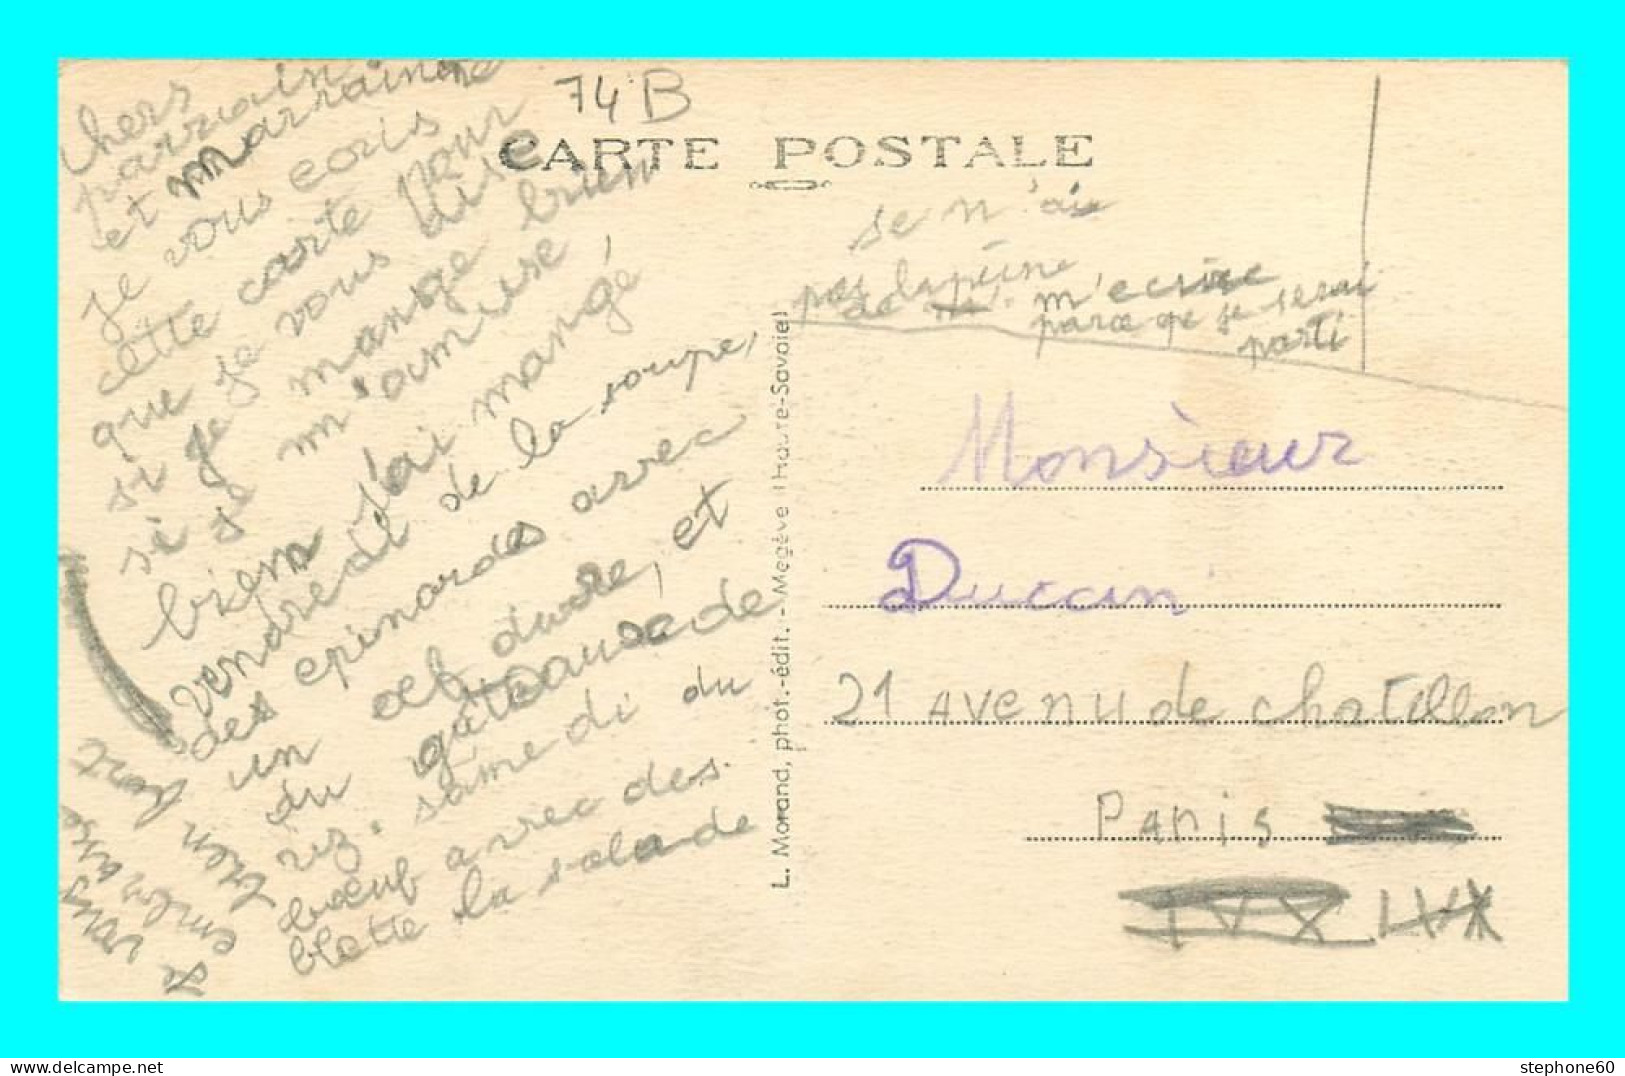 74 B
CARTE POSTALE
chers
parrain
et marraine
je vous ecris
cette carte pour
que je vous dise
si je mange bien
si je m'amuse,
bien j'ai mangé
vendredi de la soupe,
des epinardes avec
un œuf dure, et
du gâteau de
riz. samedi du
bœuf avec des
blette la salade
je vous
embrasse
bien fort
se n'ai
pas la peine
de m'ecrire
parce qe je serai
parti
L. Morand, phot.-édit. - Megève (Haute-Savoie)
Monsieur
Duccin
21 Avenu de chatillon
Paris
IVX LVX
stephone60